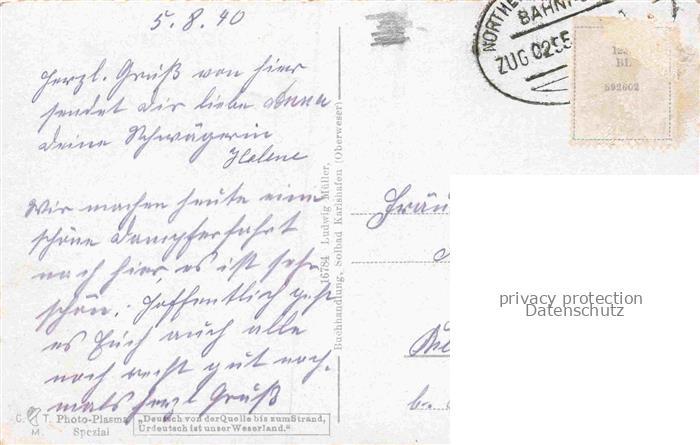 5.8.40
NORTHE
BAHNPO
ZUG 0255
BI.
592602
Herzl. Gruß von hier
sendet Dir liebe Anna
Deine Schwägerin
Helene
Wir machen heute eine
schöne Dampferfahrt
nach hier, es ist sehr
schön. Hoffentlich geht
es Euch auch alle
noch recht gut noch-
mals herzl Gruß
16784 Ludwig Müller,
Buchhandlung, Solbad Karlshafen (Oberweser)
Fräu
privacy protection
Datenschutz
b.
C. T. Photo-Plasma
M. Spezial
„Deutsch von der Quelle bis zum Strand,
Urdeutsch ist unser Weserland."